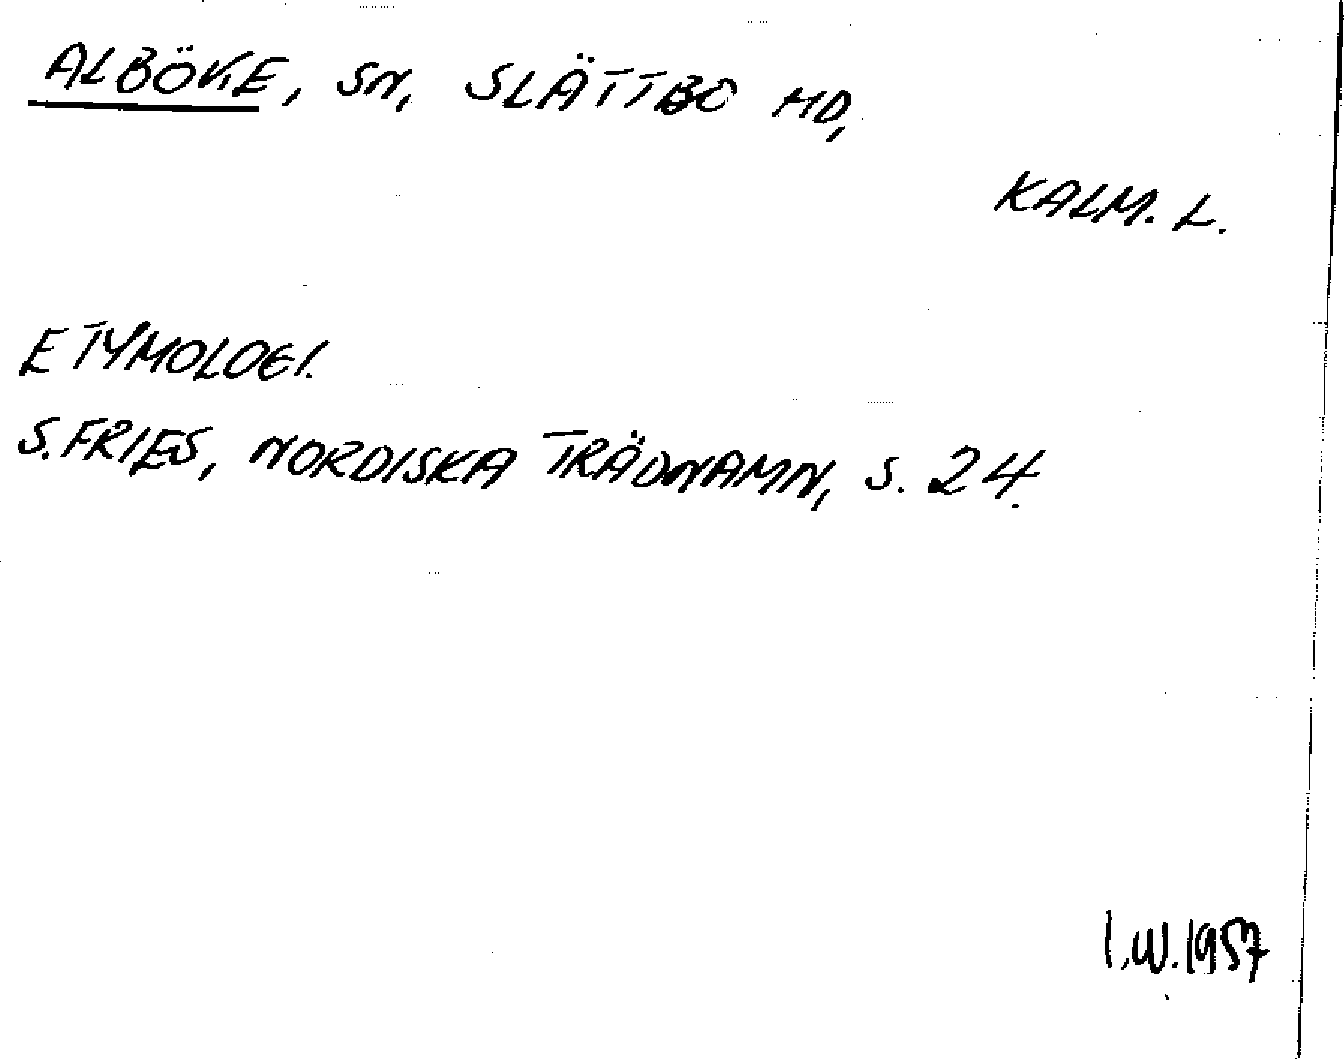 ALBÖKE, SN, SLÄTTBO HD,
KALM. L.
ETYMOLOGI.
S. FRIES, NORDISKA TRÄDNAMN, S. 24.
I.W. 1957